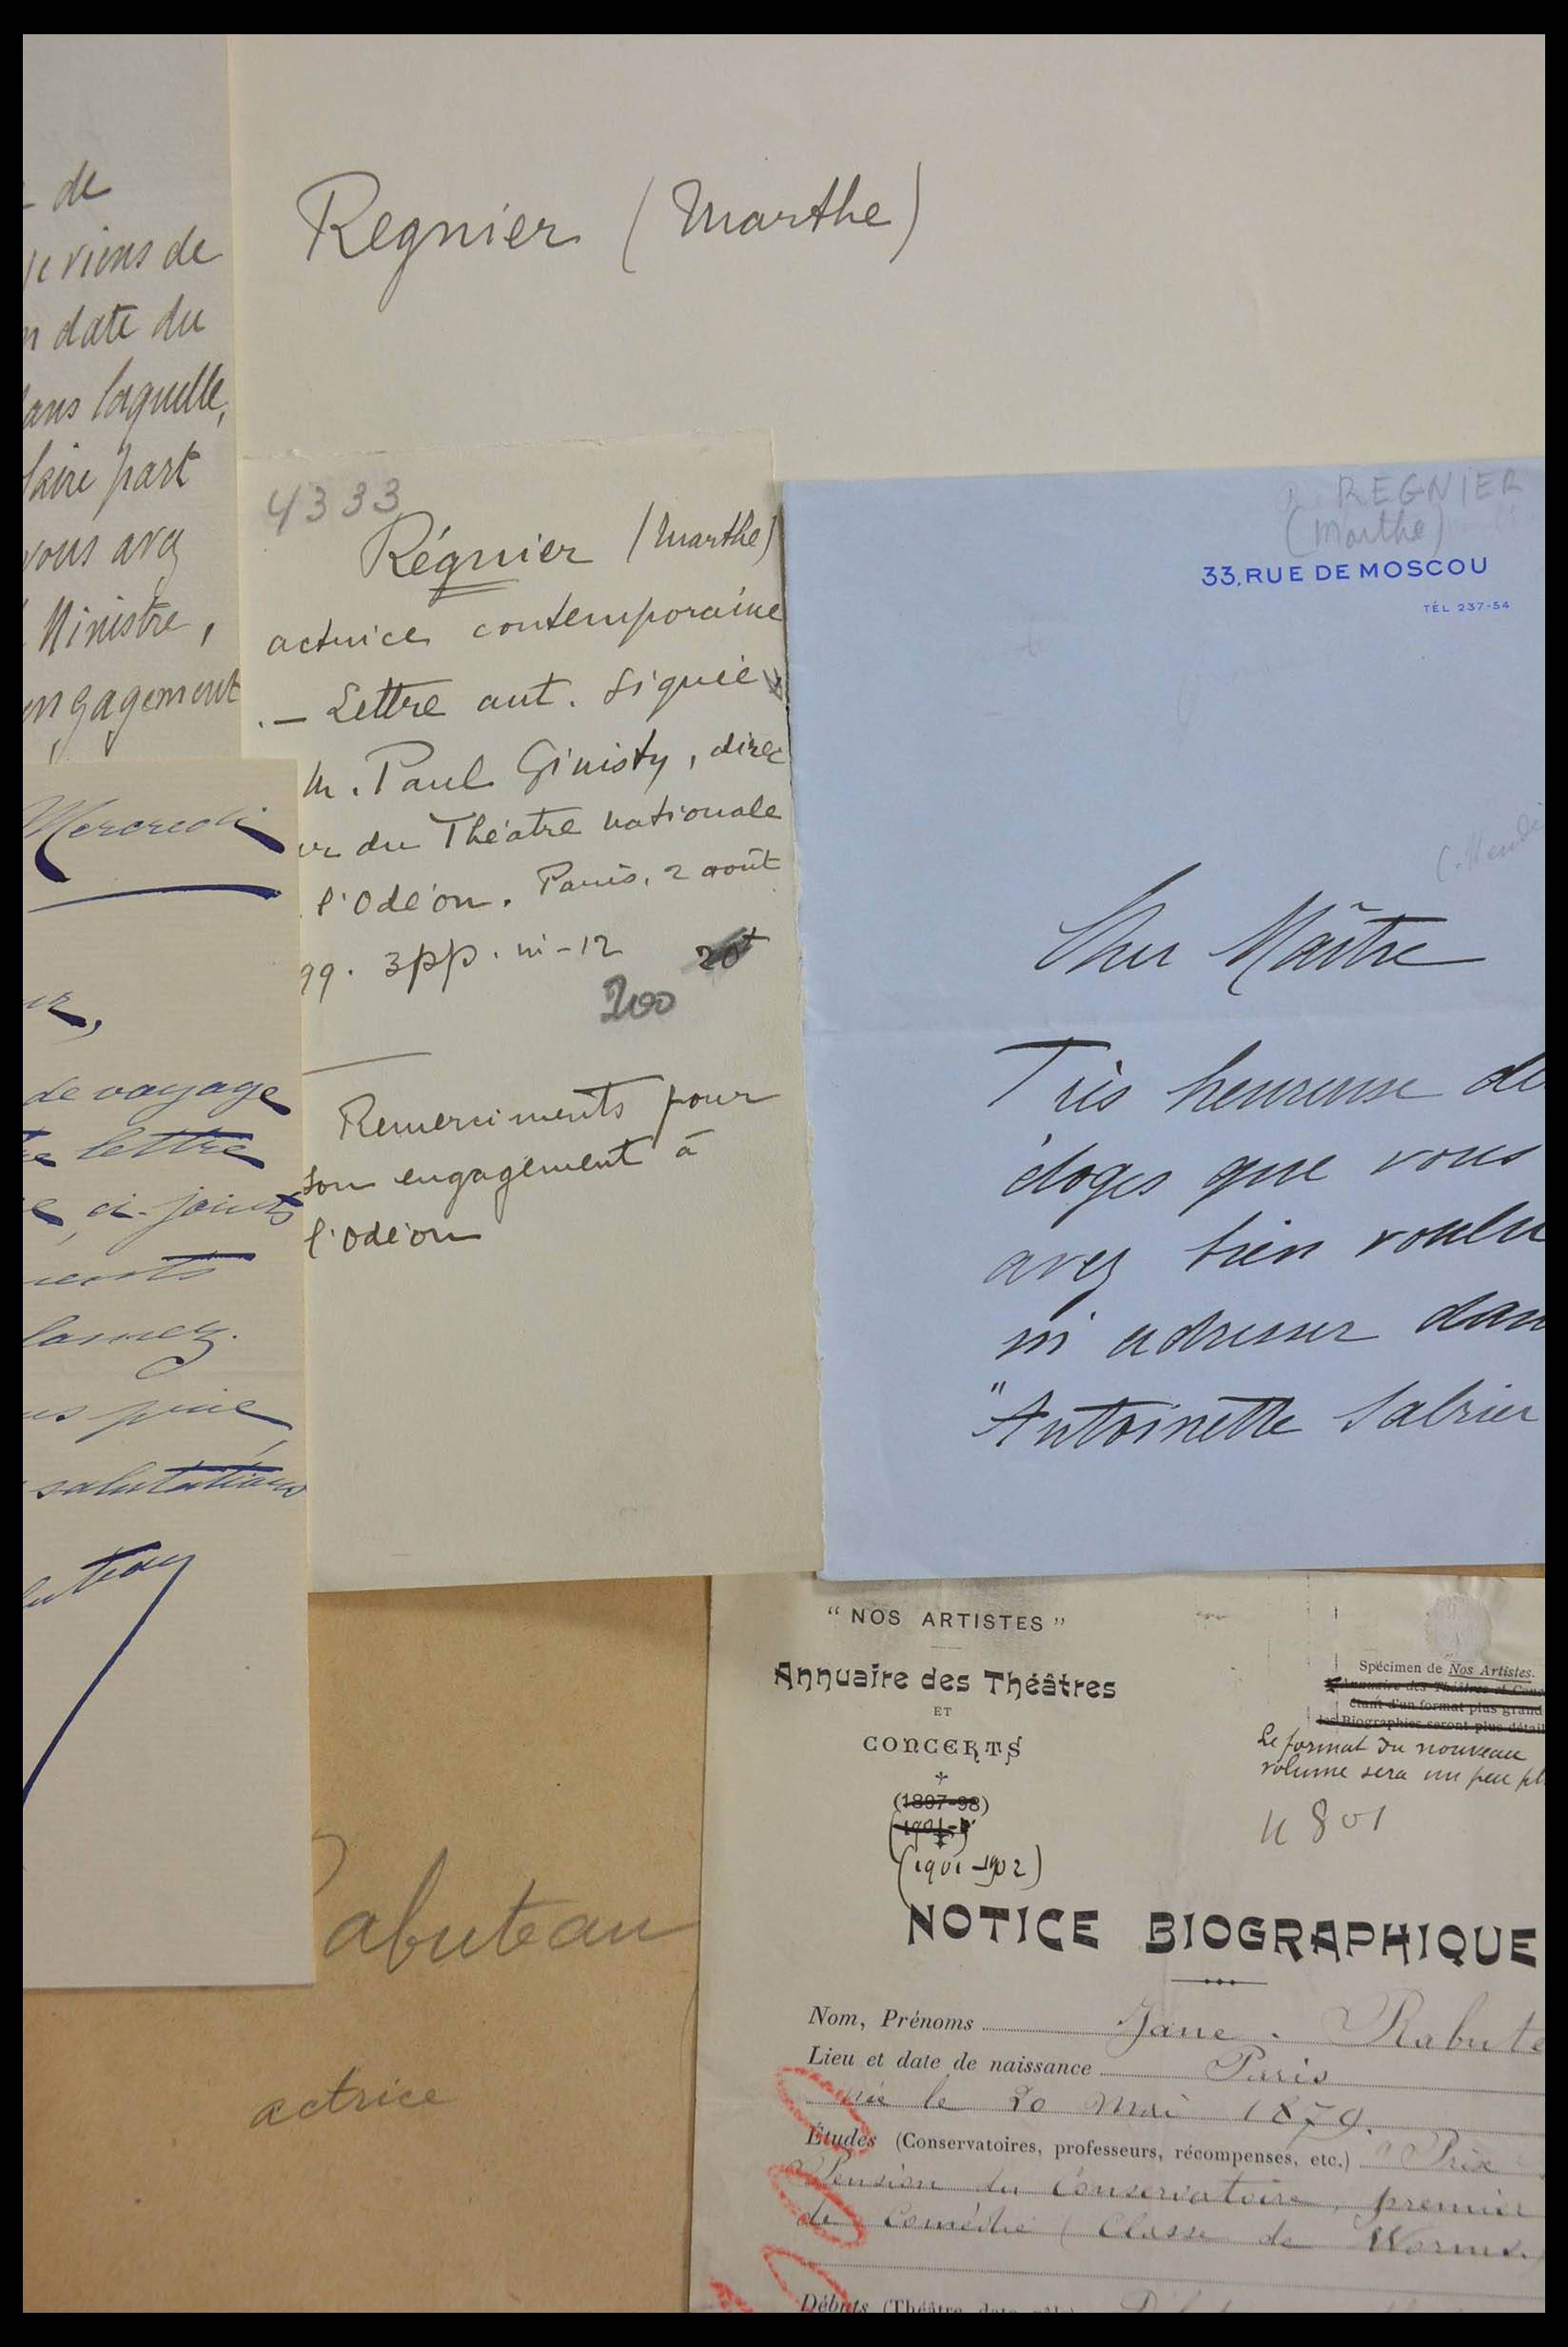 de
je viens de
n date du
dans laquelle,
faire part
vous avez
Ministre,
engagement
Regnier (Marthe)
4333
Régnier (Marthe)
actrice contemporaine
. — Lettre aut. signée
M. Paul Ginisty, direc
ur du Théatre nationale
l'Odéon. Paris, 2 août
99. 3pp. in-12 20f
200
Remerciments pour
son engagement à
l'Odéon
REGNIER
(Marthe)
33, RUE DE MOSCOU
TÉL 237-54
Cher Maître
Très heureuse de
éloges que vous
avez bien voulu
m'adresser dan
"Antoinette Sabrier
Mercredi
ur,
de voyage
lettre
ci-joints
lamez.
us prie
salutations
buteau
abuteau
actrice
“ NOS ARTISTES ”
Annuaire des Théâtres
ET
CONCERTS
(1897-98)
(1901-2)
(1901-1902)
Spécimen de Nos Artistes.
Annuaire des Théâtres et Conc
étant d'un format plus grand
les Biographies seront plus détail
Le format du nouveau
volume sera un peu pl
4801
NOTICE BIOGRAPHIQUE
Nom, Prénoms Jane. Rabute
Lieu et date de naissance Paris
née le 20 Mai 1879.
Études (Conservatoires, professeurs, récompenses, etc.) Prix
Pension du Conservatoire, premier
de Comédie (Classe de Worms.)
Débuts (Théâtre, date, rôle)